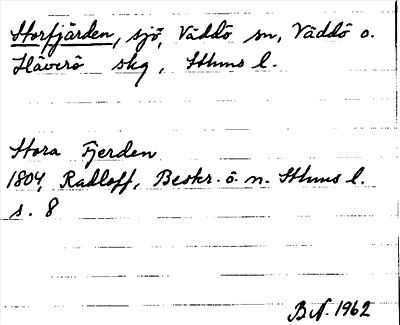 Storfjärden, sjö, Väddö sn, Väddö o.
Häverö skg, Sthms l.
Stora Fjerden
1804, Radloff, Beskr. ö. n. Sthms l.
s. 8
B.N. 1962